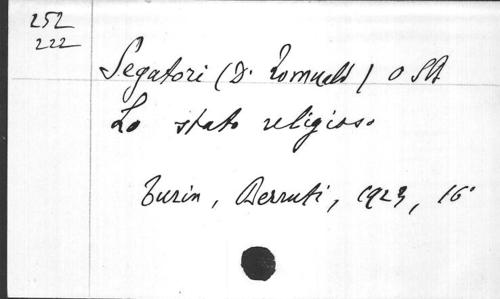 252
222
Segatori (D. Romuald) O SB
Lo stato religioso
Turin, Berruti, 1923, 16°